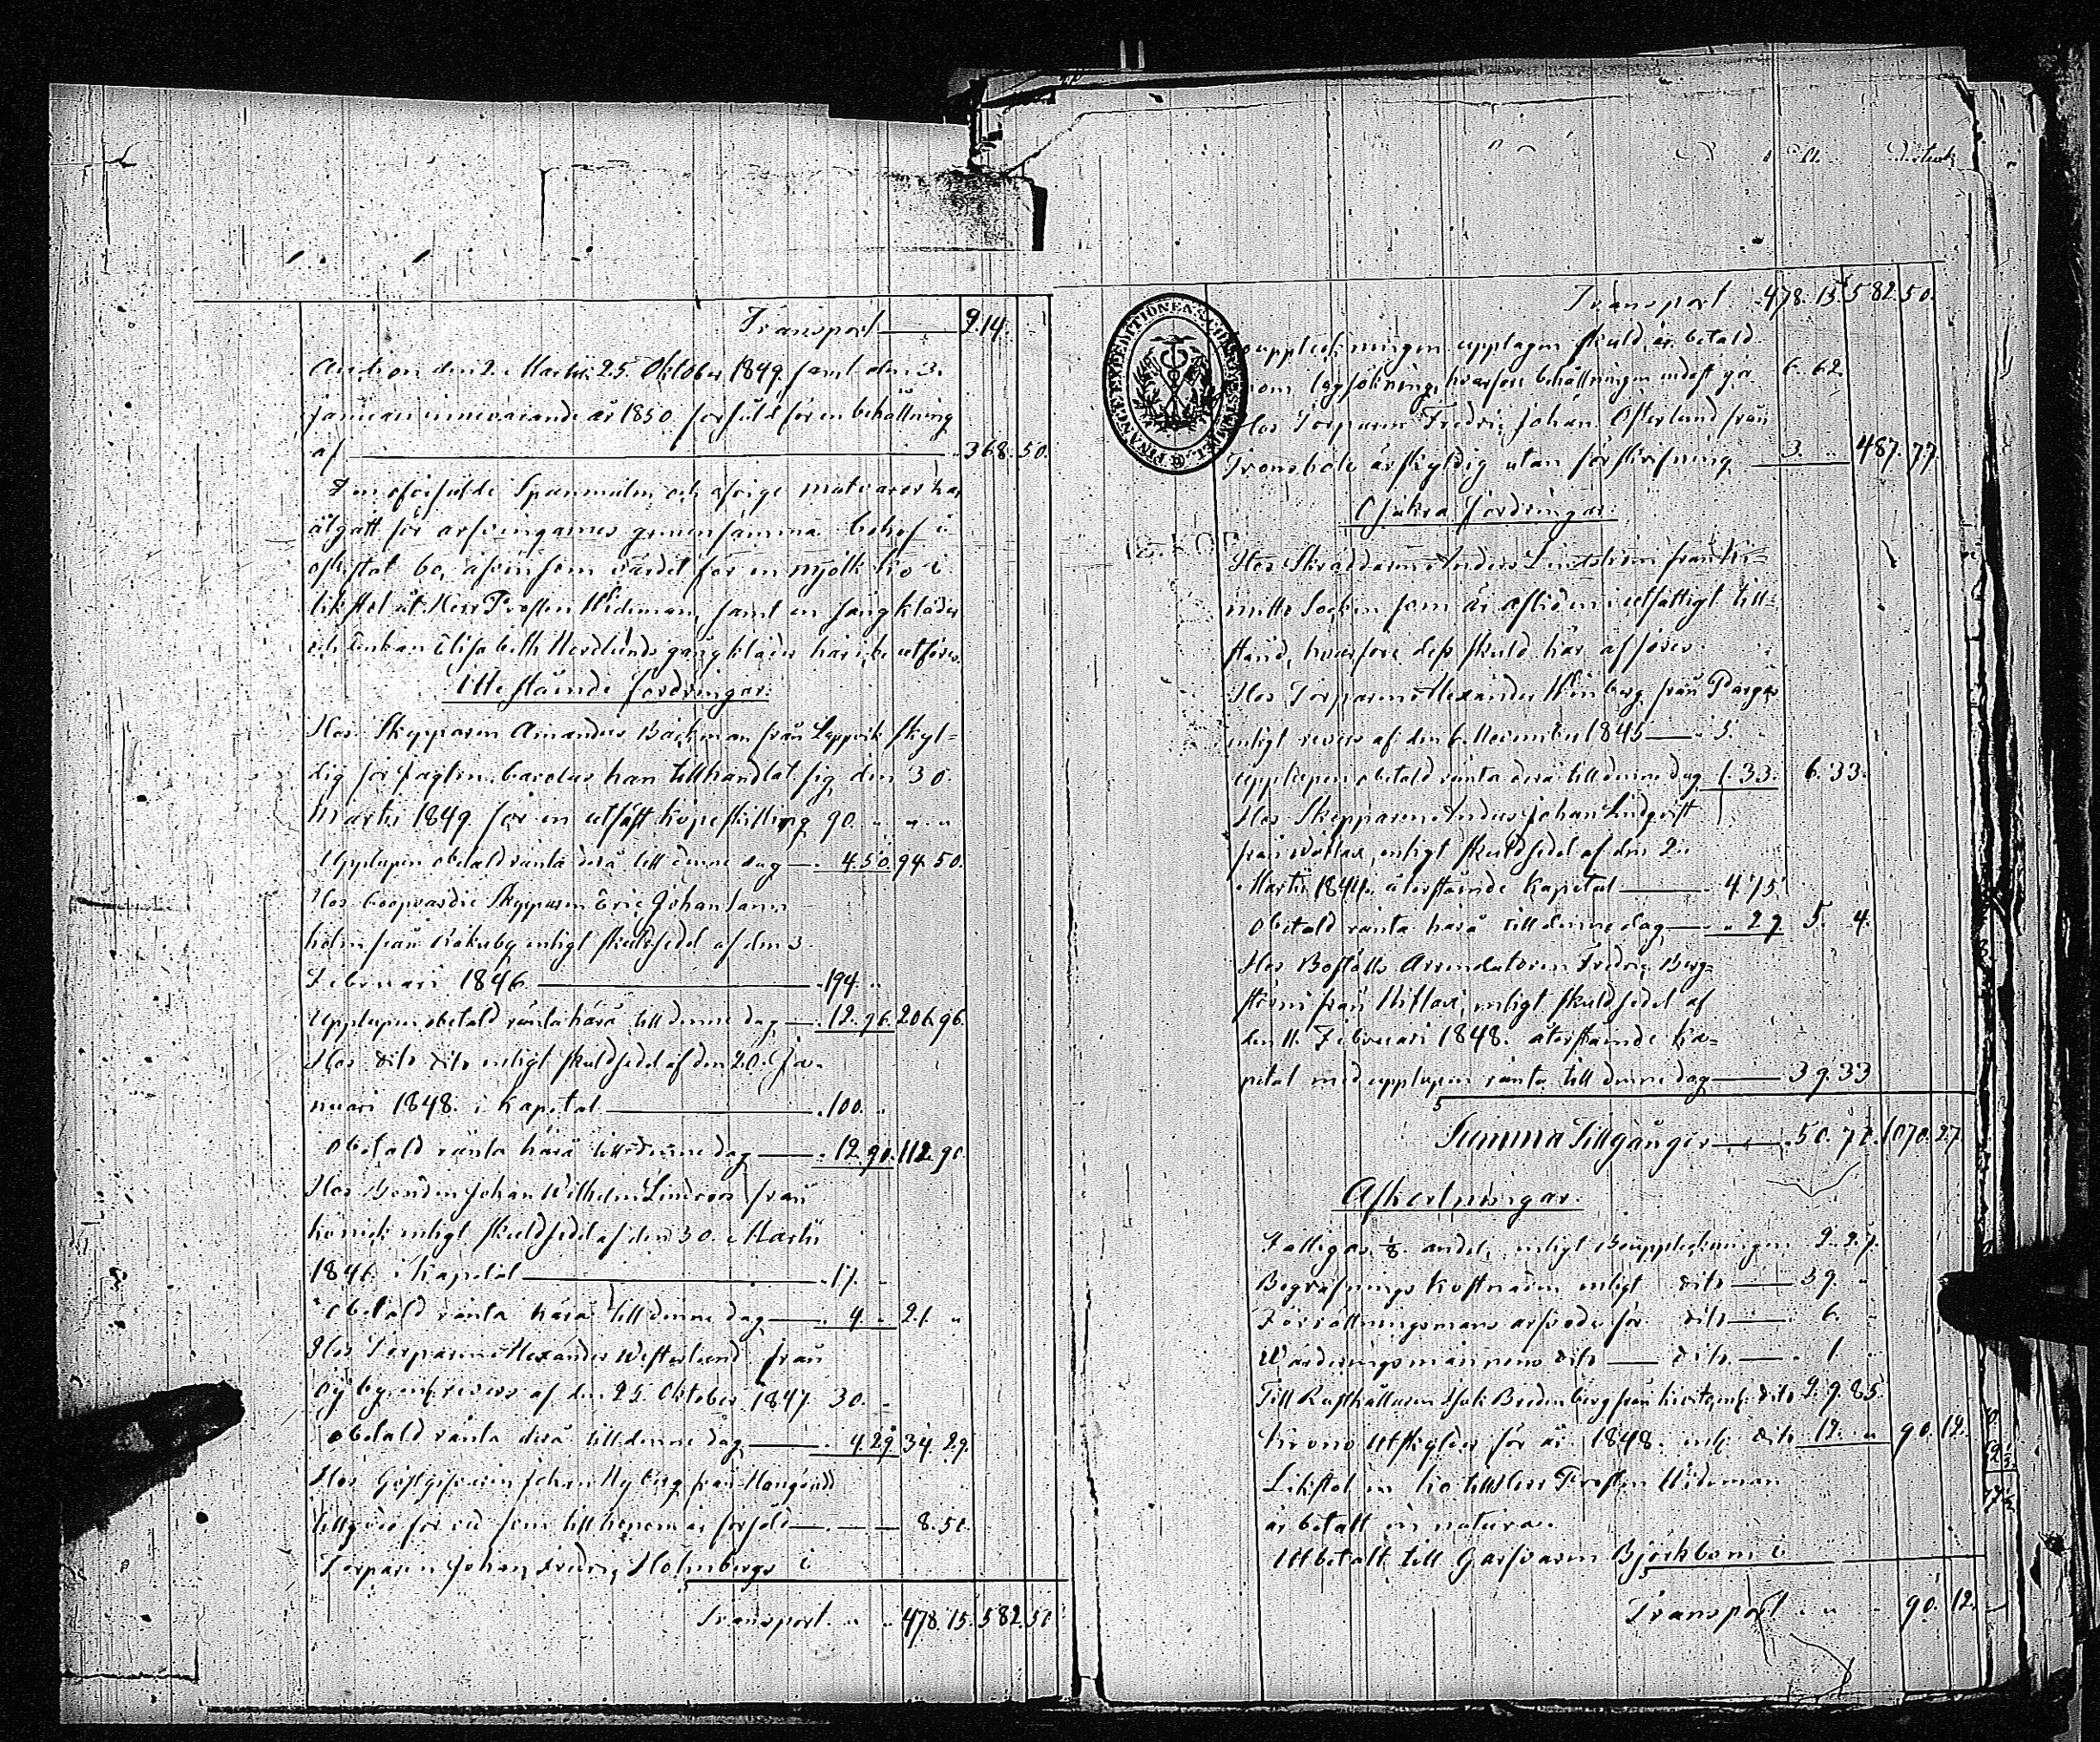 Transport — 214.
Auction den 2. Martii, 25. Oktober 1849. samt den 3.
Januari innevarande år 1850. försåld för en behållning
af — 368. 50.
Den oförsålde Spanmålen och öfrige matvaror ha,
åtgått för arfvingarnes gemensamma behof i
oskiftat bo, äfvensom värdet för en mjölk ko i
likstol åt Herr Prosten Wideman, samt en gångkläder
och Enkan Elisabeth Nordlunds gångkläder här icke utföres.
Utestående fordringar:
Hos Skepparen Amandus Backman från Lappvik skyl=
dig för jagten han tillhandlat sig den 30.
Martii 1849. för en utfäst köpeskilling 90. „ „ „
Upplupen obetald ränta derå till denne dag — 4. 50. 94. 50.
Hos Coopvardie Skepparen Eric Johan Sann
holm från Kåkuby enligt skuldsedel af den 3.
Februari 1846 — 194. „
Upplupen obetald ränta härå till denne dag — 12. 96. 206. 96.
Hos dito dito enligt skuldsedel af den 20. Ja=
nuari 1848. i Kapital — 100. „
Obetald ränta härå till denne dag — 12. 90. 112. 90.
Hos Bonden Johan Wilhelm Limroos från
enligt skuldsedel af den 30. Martii
1846 i Kapital — 17. „
Obetald ränta härå till denne dag — 4. „ 21. „
Hos Torparen Alexander Westerlund från
Öjby enl. revers af den 25. Oktober 1847. 30. „
Obetald ränta derå till denne dag — 4. 29. 34. 29.
Hos Gästgifvaren Johan Nyberg från
tillgodo för ved som till honom är försåld — 8. 50.
Torparen Johan Fredric Holmbergs i
Transport „ „ 478. 15. 582. 50.
Transport 478. 15. 582. 50.
bouppteckningen upptagen skuld är betald
genom lagsökning, hvarföre behållningen endast gör 6. 62.
Hos Torparen Fredric Johan Österlund från
Tronsböle är skyldig utan förskrifning — 3. „ 487. 77.
Osäkra fordringar:
Hos Skräddaren Anders Lindström från Ki=
mitto Socken som är afliden i utfattigt till=
stånd, hvarföre dess skuld här afföres
Hos Torparen Alexander Winberg från Pargas
enligt revers af den 6. November 1845 — 5.
Upplupen obetald ränta derå till denne dag 1. 33. 6. 33.
Hos Skepparen Anders Johan Lindqvist
från enligt skuldsedel af den 2.
Martii 1844. återstående Kapital — 4. 75.
Obetald ränta härå till denne dag — „ 29. 5. 4.
Hos Boställs Arrendatoren Fredric Berg=
ström från Hittis, enligt skuldsedel af
den 11. Februari 1848. återstående Ka=
pital med upplupen ränta till denne dag — 39. 33
Summa Tillgångar — 50. 70. 1070. 27.
Afkortningar:
Fattigas 1/8 andel, enligt Bouppteckningen 2. 27.
Begrafnings kostnaden enligt dito — 39. „
Förrättningsmans arfvode för dito — 6. „
Wärderingsmännens dito — dito — 1 „
Till Rusthållaren Isak Bredenberg från enl. dito 29. 85.
Krono Utskylder för år 1848. enl. dito 12. „ 90. 12.
Likstol en ko till Herr Prosten Wideman
är betalt in natura.
Utbetalt till Garfvaren Björkbom i
Transport „ „ 90. 12.